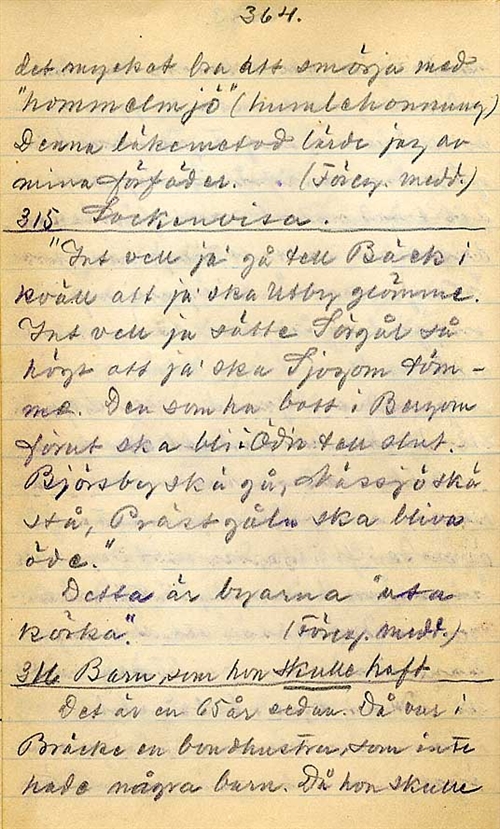 364.
det myckat bra att smörja med
"hommelmjö" (humlehonnung)
Denna läkemetod lärde jag av
mina förfäder. (Föreg. medd.)
315 Sockenvisa.
"Int vell ja' gå tell Bäck i
kväll att ja' ska Utby glömme.
Int vell ja sätte Sörgål så
högt att ja' ska Sjogom töm-
me. Den som ha bott i Bergom
förut ska bli i Ödn tell slut.
Björsby ska gå, Nässjö ska
stå, Prästgåln ska bliva
öde."
Detta är byarna "uta
körka". (Föreg. medd.)
316 Barn, som hon skulle haft
Det är en 65 år sedan. Då var i
Bräcke en bondhustru, som inte
hade några barn. Då hon skulle